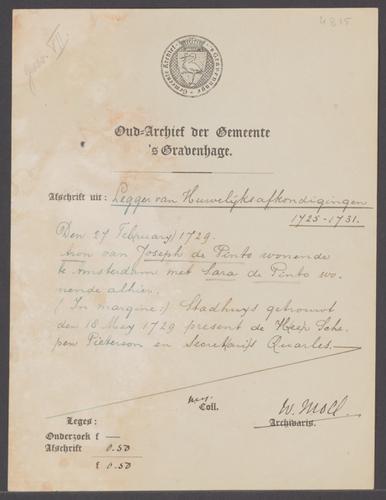 4815
Gemeente Archief 's Gravenhage
Oud-Archief der Gemeente
's Gravenhage.
Afschrift uit: Legger van Huwelijksafkondigingen
1725-1731.
Den 27 February 1729.
Aron van Joseph de Pinto wonende
te Amsterdam met Sara de Pinto wo-
nende alhier.
(In margine:) Stadhuys getrouwt
den 18 Mey 1729 present de Heer Sche-
pen Pieterson en Secretarijs Quarles.
Coll.
W. Moll.
Archivaris.
Leges:
Onderzoek f —
Afschrift " 0.50
f 0.50